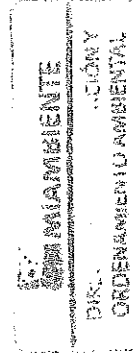 MIAMBIENTE
CIÓN Y
ORDENAMIENTO AMBIENTAL